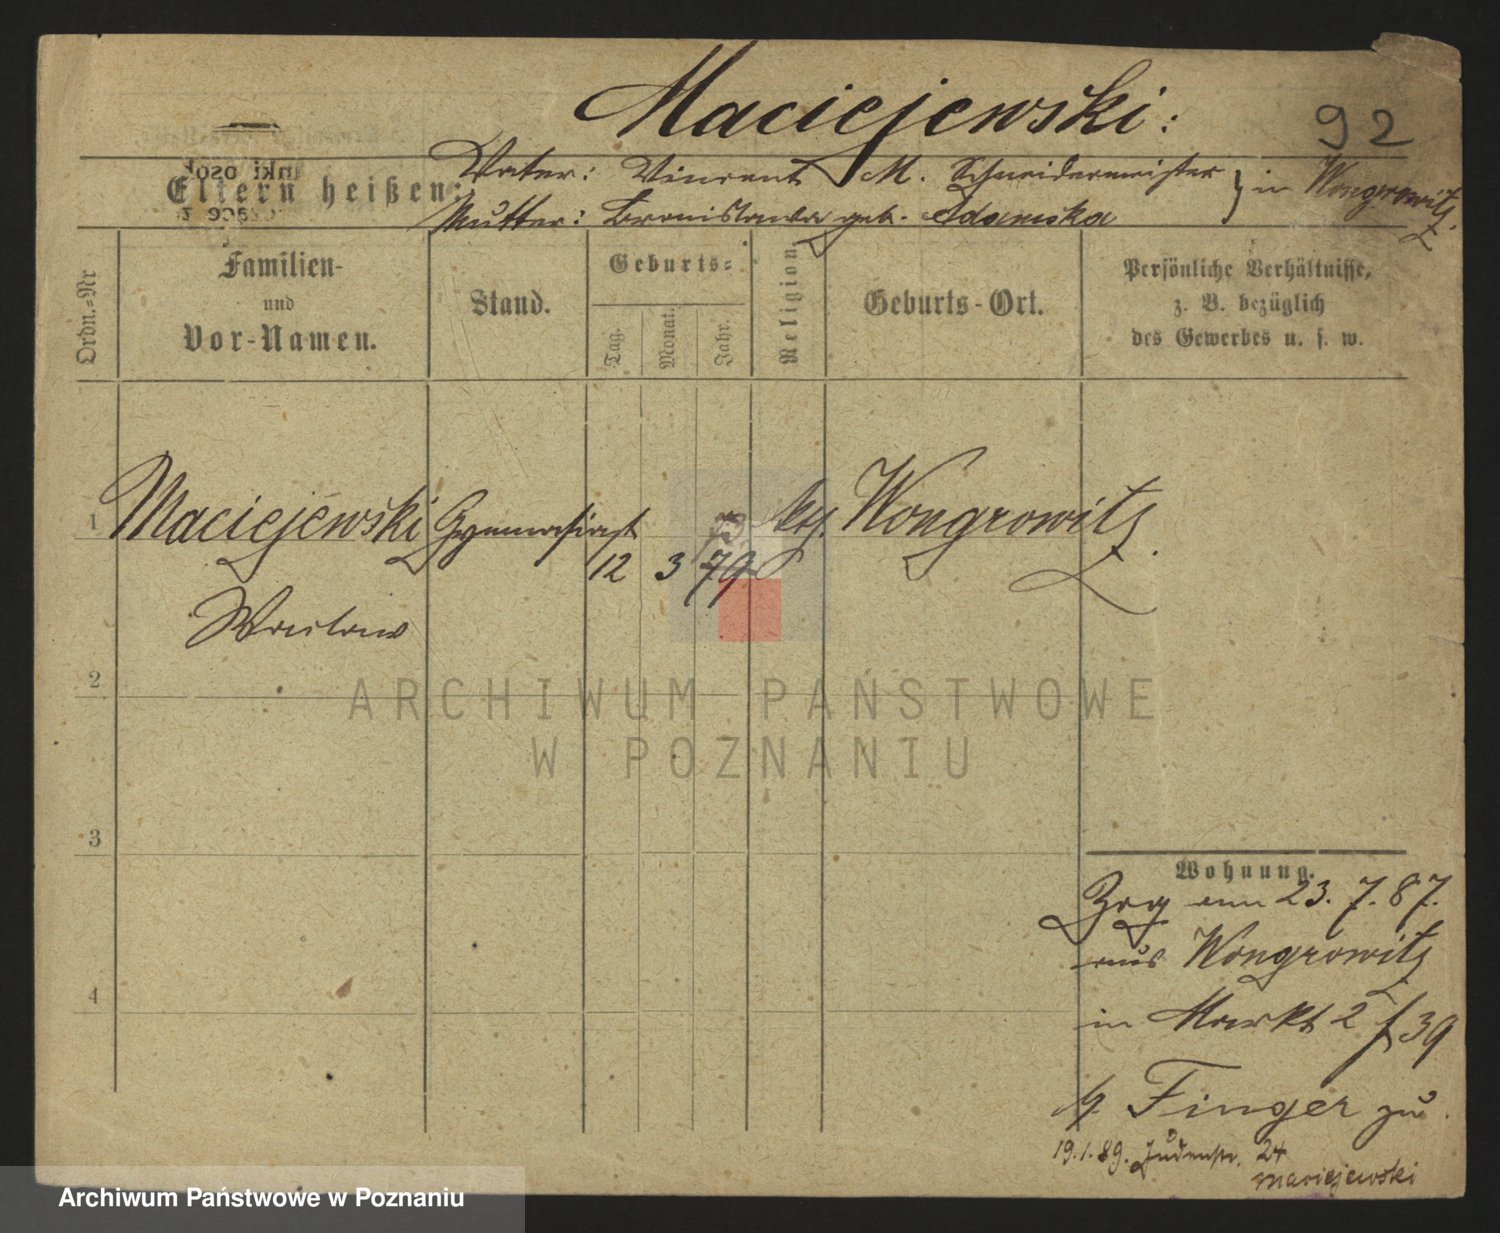 Maciejewski:
92
Eltern heißen:
Vater: Vincent M. Schneidermeister
Mutter: Bronislawa geb. Adamska } in Wongrowitz.
Ordn.=Nr
Familien-
und
Vor-Namen.
Stand.
Geburts=
Tag.
Monat.
Jahr.
Religion.
Geburts-Ort.
Persönliche Verhältnisse,
z. B. bezüglich
des Gewerbes u. s. w.
1 Maciejewski Gymnasiast kg. Wongrowitz.
12 3 79
Waclaw
2
ARCHIWUM PAŃSTWOWE
W POZNANIU
3
Wohnung.
Zzg am 23. 7. 87.
aus Wongrowitz
4
in Markt 2 f 39
Finger zu.
19.1.89. Judenstr. 24
Maciejewski
Archiwum Państwowe w Poznaniu